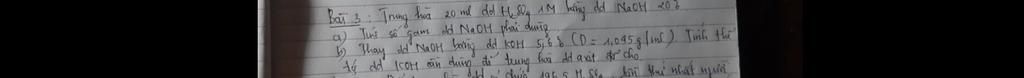 Bài 3: Trung hoà 20 ml dd H2SO4 1M bằng dd NaOH 20%
a) Tính số gam dd NaOH phải dùng
b) Thay dd NaOH bằng dd KOH 5,6% (D = 1,045g/ml) Tính thể
dd KOH cần dùng để trung hoà dd axit đã cho
thứ nhất người